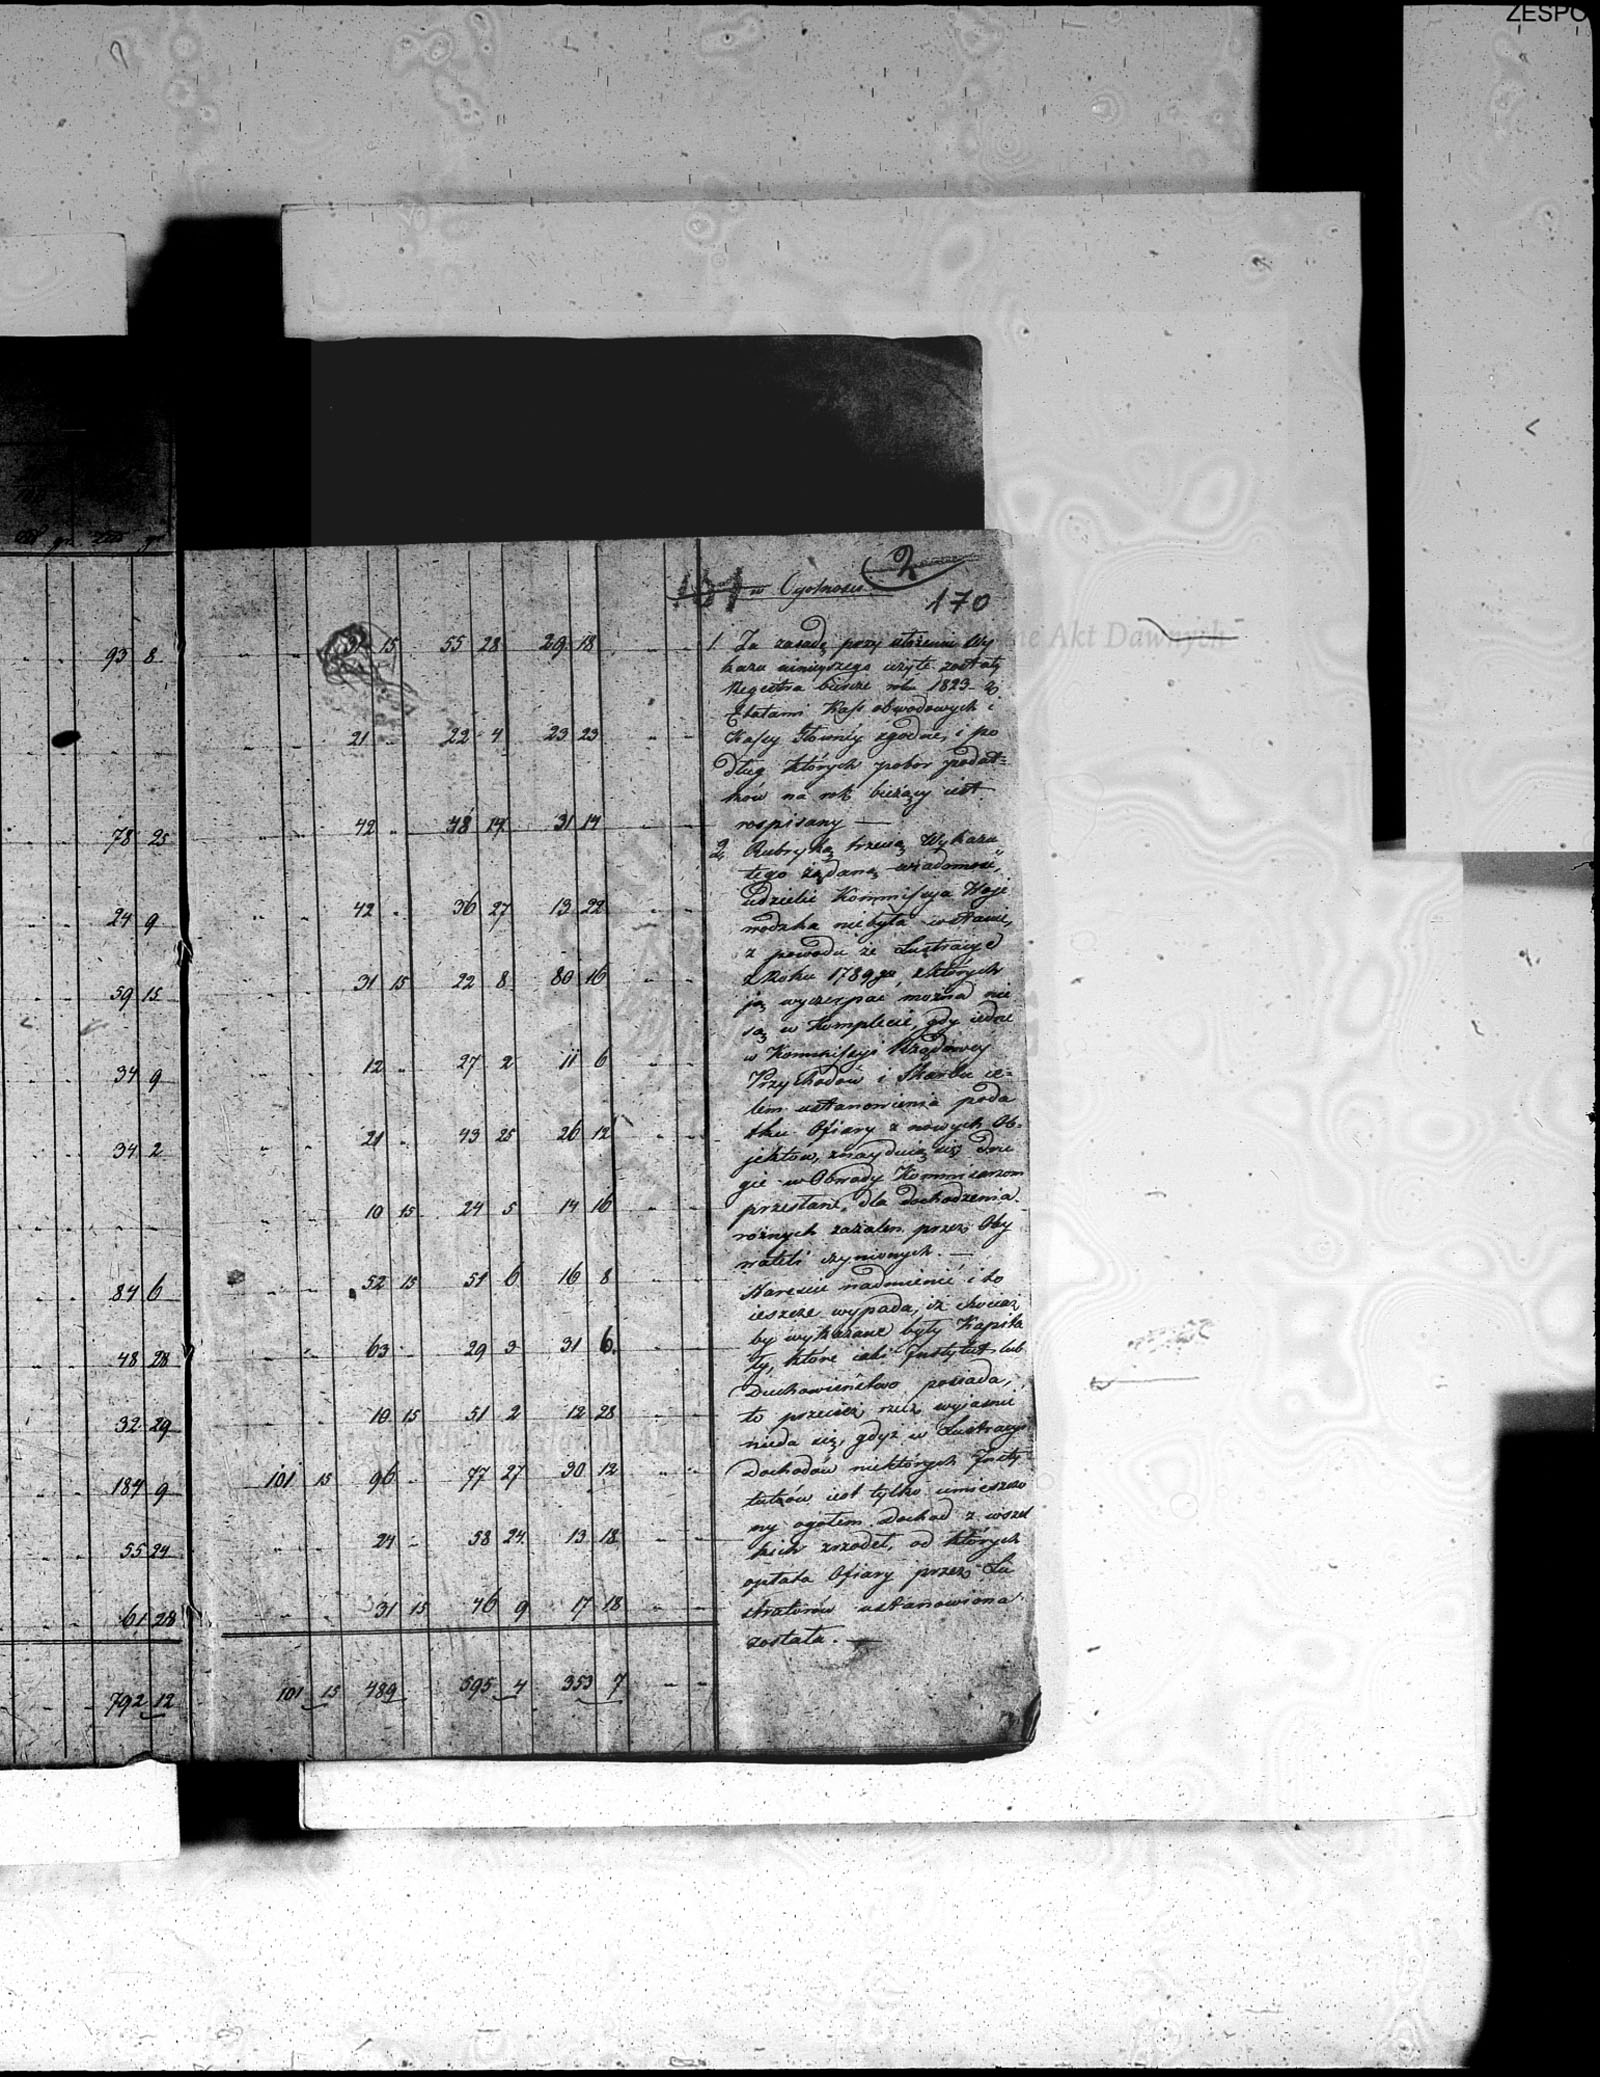 ZESPO
2
w Ogolności
170
zł gr złp gr
93 8
31 15 55 28 29 18
21 22 4 23 23
78 25
42 48 14 31 14
24 9
42 36 27 13 22
59 15
31 15 22 8 80 16
34 9
12 27 2 11 6
34 2
21 43 25 26 12
10 15 24 5 14 16
84 6
52 15 51 6 16 8
48 28
63 29 3 31 6
32 29
10 15 51 2 12 28
184 9
101 15 96 77 27 30 12
55 24
24 58 24 13 18
61 28
31 15 46 9 17 18
792 12
101 15 489 595 4 353 7
1. Za zasadę przy ułożeniu Wy
kazu ninieyszego użyte zostały
Regestra bierze roku 1823 z
Etatami Kass obwodowych i
Kassy Głowney zgodne, i po
dług których pobor podat=
ków na rok bieżący iest
rospisany —
2. Rubryką trzecią Wykazu
tego żądaną wiadomość,
udzielić Kommissya Woje
wodzka niebyła wstanie,
z powodu że Lustracye
z Roku 1789go, z których
ią wyczerpać można nie
są w Komplecie, gdy iedne
w Kommissyi Rządowey
Przychodów i Skarbu ce=
lem ustanowienia poda
tku Ofiary z nowych Ob=
jektow, znayduią się Dru
gie w Obwody Kommissarzom
przesłane, dla dochodzenia
rożnych zażaleń przez Oby
wateli czynionych. —
Nareście nadmienić i to
ieszcze wypada, iż chociaż
by wykazane były Kapita
ły, które iaki Instytut lub
Duchowieństwo posiada,
to przecież rzecz wyjaśnić
nieda się, gdyż w Lustracyi
Dochodów niektórych Insty=
tutów iest tylko umieszczo
ny ogołem Dochod z wszel
kich zrzodeł, od których
opłata Ofiary przez Lu
stratorów ustanowiona
została. —
ne Akt Dawnych